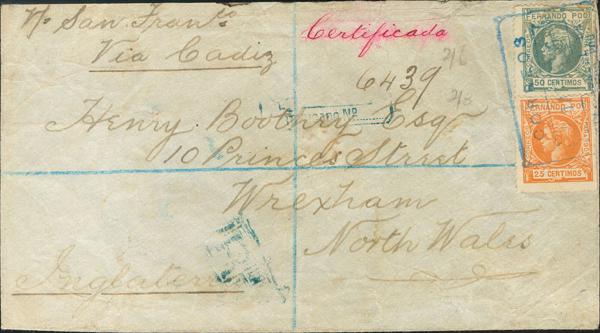 Pr San Franco
Via Cadiz
Certificada
6439
2/6
Henry Boothry Esqr
10 Princes Street
Wrexham
North Wales
Inglaterra
FERNANDO POO
50 CENTIMOS
FERNANDO POO
25 CENTIMOS